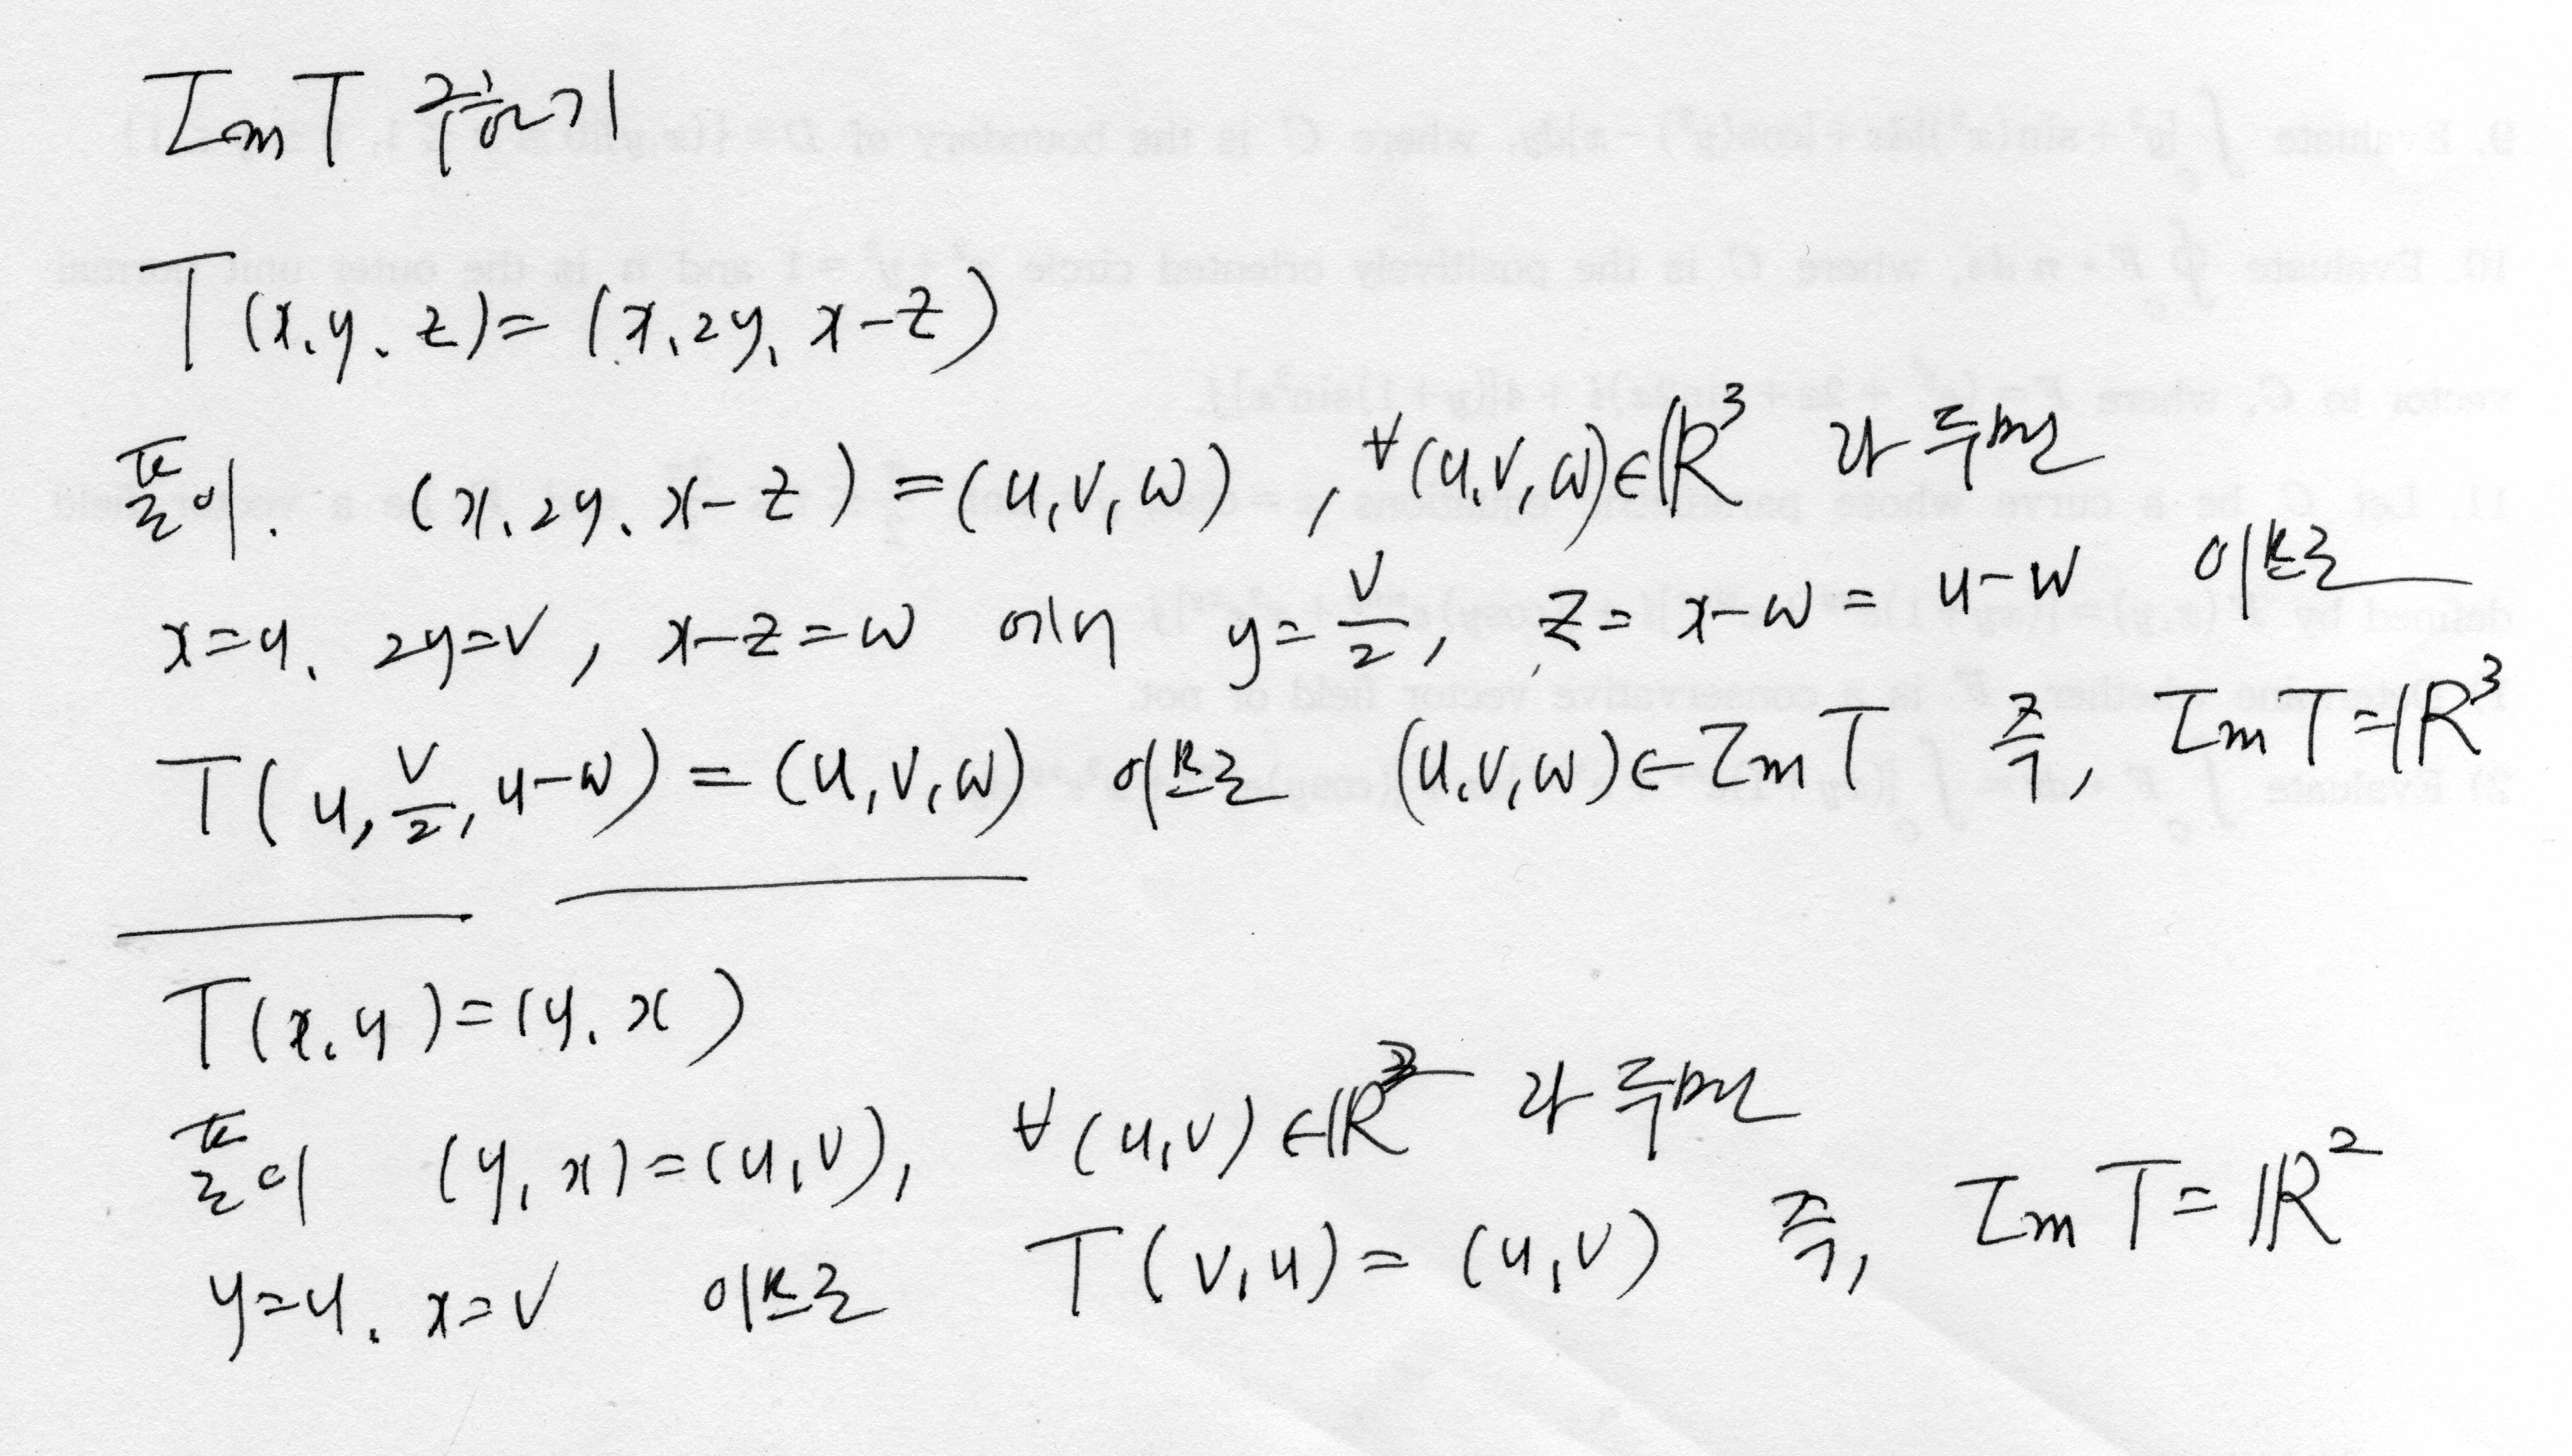 Im T 구하기
T(x, y, z) = (x, 2y, x-z)
풀이. (x, 2y, x-z) = (u, v, w), ∀(u, v, w)∈ℝ³ 라 두면
x=u, 2y=v, x-z=w 에서 y=v/2, z=x-w=u-w 이므로
T(u, v/2, u-w) = (u, v, w) 이므로 (u, v, w)∈Im T 즉, Im T=ℝ³
T(x, y)=(y, x)
풀이 (y, x)=(u, v), ∀(u, v)∈ℝ 라 두면
y=u, x=v 이므로 T(v, u)=(u, v) 즉, Im T=ℝ²